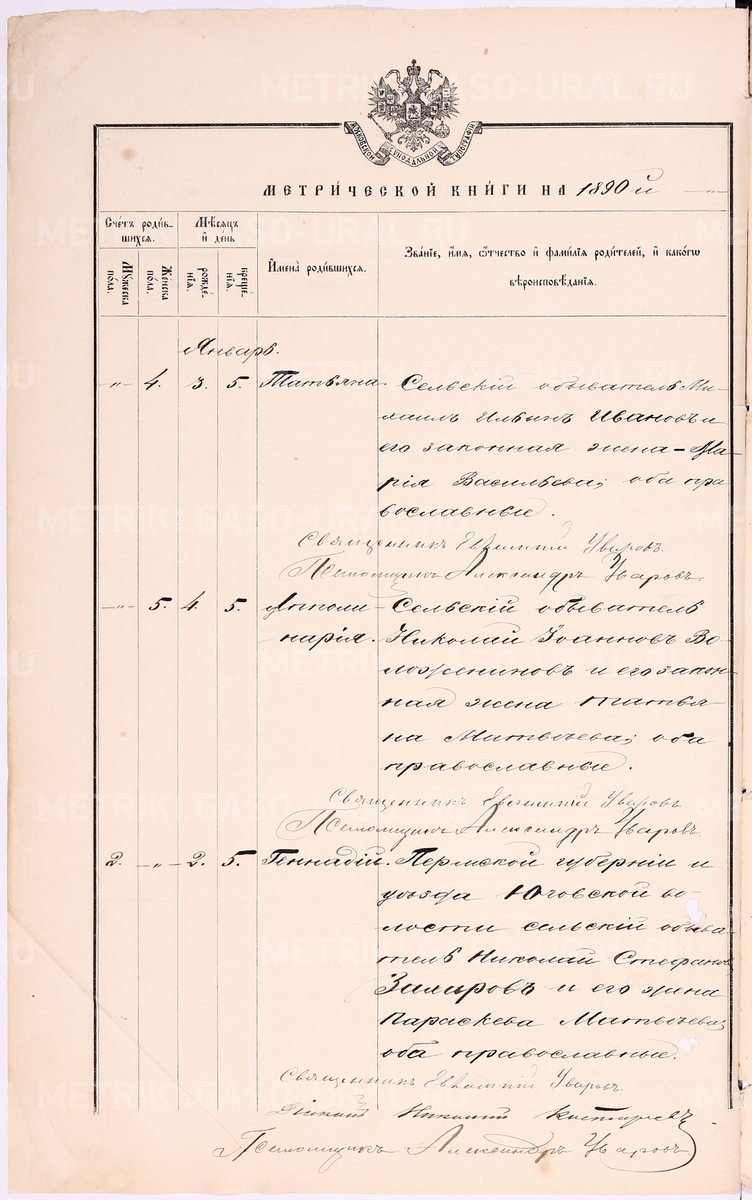 METRIKI-GASO-URAL.RU
МОСКОВСКОЙ СѴНОДАЛЬНОЙ ТИПОГРАФІИ
МЕТРИ́ЧЕСКОЙ КНИ́ГИ НА 1890 й
Сче́тъ роди́в-
шихся.
Мѣсяцъ
и҆ де́нь
Му́жеска
по́ла.
Же́нска
по́ла.
рожде́-
нїѧ.
креще́-
нїѧ.
И҆мена̀ роди́вшихся.
Зва́нїе, и҆́мѧ, ѻ҆́тчество и҆ фами́лїѧ роди́телей, и҆ како́гѡ
вѣроисповѣ́данїѧ.
Январь.
„ 4. 3. 5. Татьяна. Сельскій обыватель Ми-
хаилъ Ильинъ Ивановъ и
его законная жена - Ма-
рія Васильева; оба пра
вославные.
Священникъ Евѳимій Уваровъ
Псаломщикъ Александръ Уваровъ
„ 5. 4. 5. Апполи- Сельскій обыватель
нарія. Николай Іоанновъ Во-
ложениновъ и его закон-
ная жена Татья-
на Матвѣева; оба
православные.
Священникъ Евѳимій Уваровъ
Псаломщикъ Александръ Уваровъ
2. „ 2. 5. Геннадій. Пермской губерніи и
уѣзда Юговской во-
лости сельскій обыва-
тель Николай Стефановъ
и его жена
Параскева Матвѣева;
оба православные.
Священникъ Евѳимій Уваровъ
Николай
Псаломщикъ Александръ Уваровъ